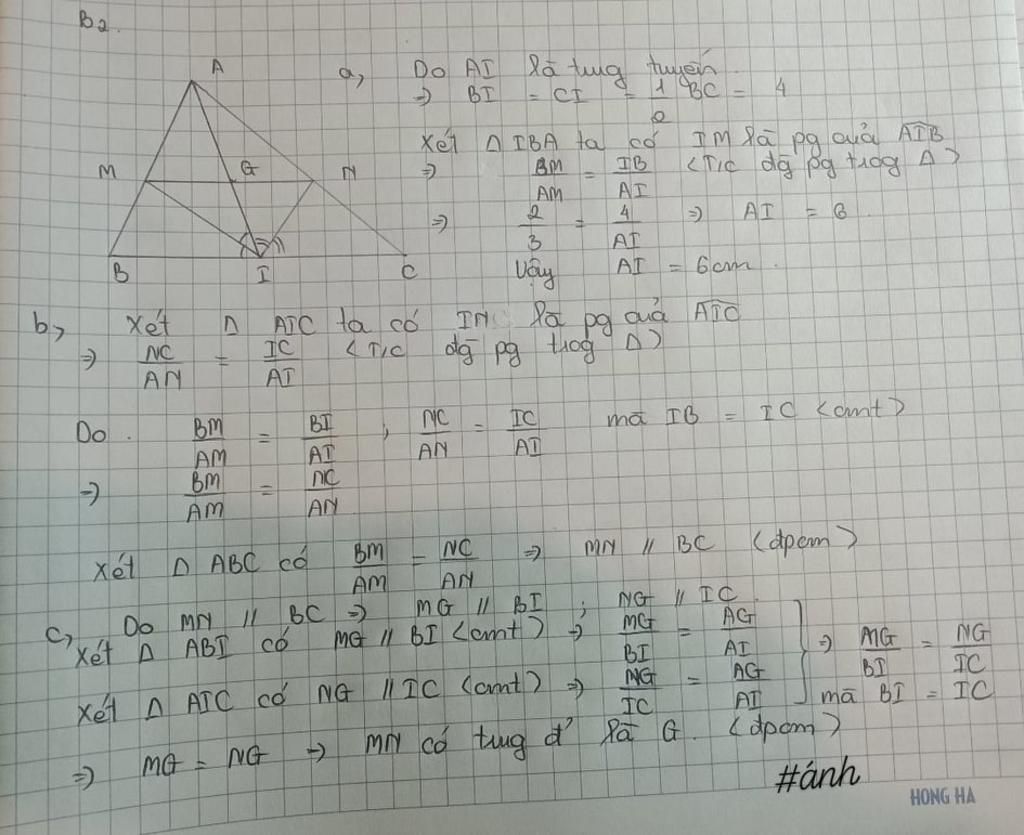 B2.
A
M
G
N
B
I
C
a, Do AI là tung tuyến
=> BI = CI = 1/2 BC = 4
Xét Δ IBA ta có IM là pg của AIB
=> BM/AM = IB/AI <T/c đg pg tiog Δ>
=> 2/3 = 4/AI => AI = 6
Vậy AI = 6cm.
b, Xét Δ AIC ta có IN là pg của AIC
=> NC/AN = IC/AI <T/c đg pg tiog Δ>
Do. BM/AM = BI/AI ; NC/AN = IC/AI mà IB = IC <cmt>
=> BM/AM = NC/AN
Xét Δ ABC có BM/AM = NC/AN => MN // BC <đpcm>
c, Do MN // BC => MG // BI ; NG // IC
Xét Δ ABI có MG // BI <cmt> => MG/BI = AG/AI
Xét Δ AIC có NG // IC <cmt> => NG/IC = AG/AI
=> MG/BI = NG/IC
mà BI = IC
=> MG = NG => MN có tung đ' là G. <đpcm>
#ánh
HONG HA